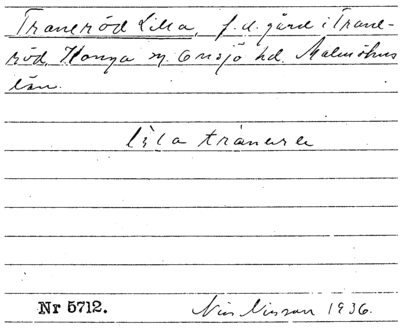 Traneröd Lilla, f.d. gård i Trane-
röd, Konga sn. Onsjö hd. Malmöhus
län.
lila tranere
Nr 5712.
Nils Nilsson 1936.